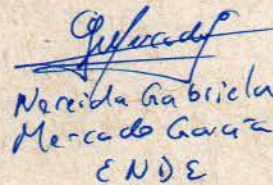 Nereida Gabriela
Mercado García
ENDE